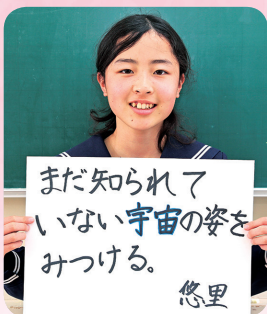 まだ知られて
いない宇宙の姿を
みつける。
悠里